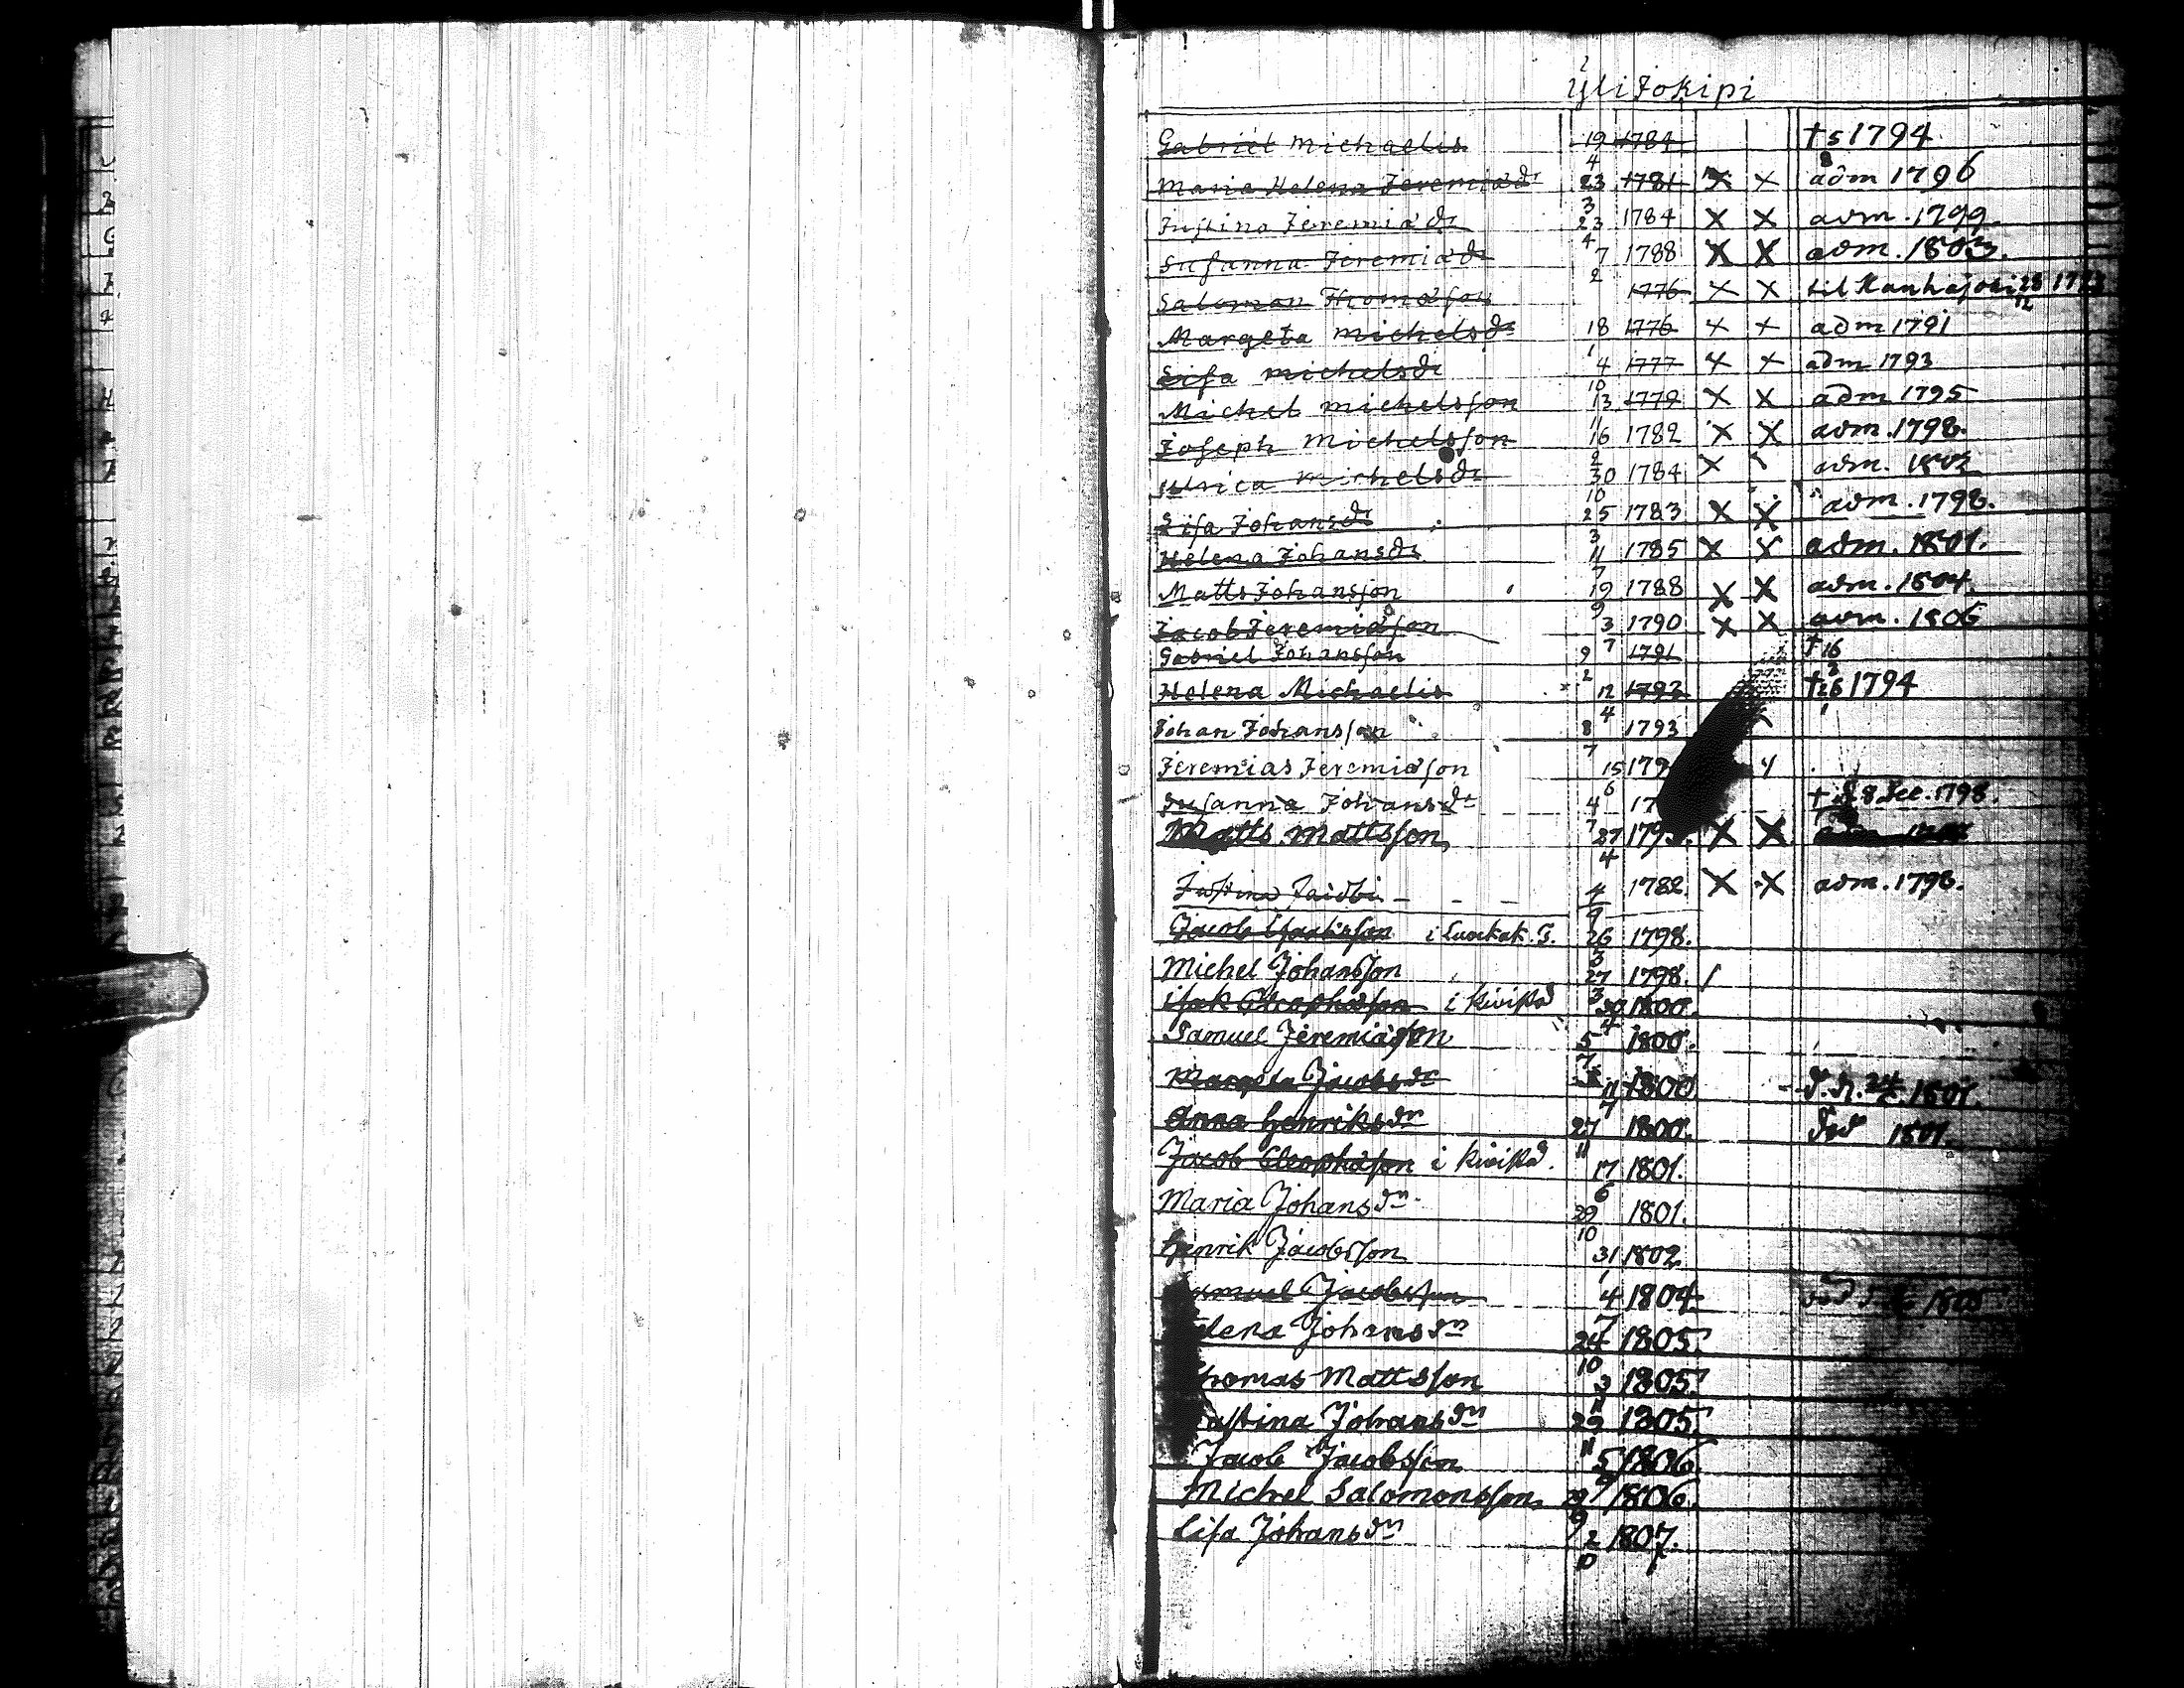 Yli Jokipi
Gabriel Michaelis 19/4 1784 † 5/8 1794
Maria Helena Jeremiædr 23/3 1781 X X adm 1796
Justina Jeremiædr 23/4 1784 X X adm. 1799.
Susanna Jeremiædr 7/2 1788 X X adm. 1803.
Salomon Thomæson 1776 X X til Kauhajoki 28/12
Margeta Michelsdr 18/1 1776 X X adm 1791
Lisa Michelsdr 4/10 1777 X X adm 1793
Michel Michelsson 13/11 1779 X X adm 1795
Joseph Michelsson 16/9 1782 X X adm. 1798.
Ulrica Michelsdr 30/10 1784 X adm. 1802
Lisa Johansdr 25/3 1783 X X adm. 1798.
Helena Johansdr 11/7 1785 X X adm. 1801.
Matts Johansson 19/9 1788 X X adm. 1804.
Jacob Jeremiæson 3/7 1790 X X adm. 1806
Gabriel Johansson 9/2 1791 † 16
Helena Michaelis 12/4 1792 † 26/1 1794
Johan Johansson 8/7 1793
Jeremias Jeremiæson 15/6
Susanna Johansdr 4/7 † d. 8 Dec. 1798.
Matts Mattsson 27/4 1793. X X
Justina 4/9 1782. X X adm. 1798.
Jacob Isaksson 26/3 1798.
Michel Johansson 27/3 1798.
Isak Cleophæson i 30/4 1800.
Samuel Jeremiæson 5/7 1800.
Margeta Jacobsdr 11/7 1800. 1801.
Anna Henriksdr 27/11 1800. död 1801.
Jacob Cleophæson i 17/6 1801.
Maria Johansdr 29/10 1801.
Henrik Jacobsson 31/1 1802.
Samuel Jacobsson 4/7 1804 död
Helena Johansdr 24/10 1805.
Thomas Mattsson 3/11 1805.
Justina Johansdr 29/11 1805.
Jacob Jacobsson 5/9 1806.
Michel Salomonsson 29/9 1806.
Lisa Johansdr 2/10 1807.